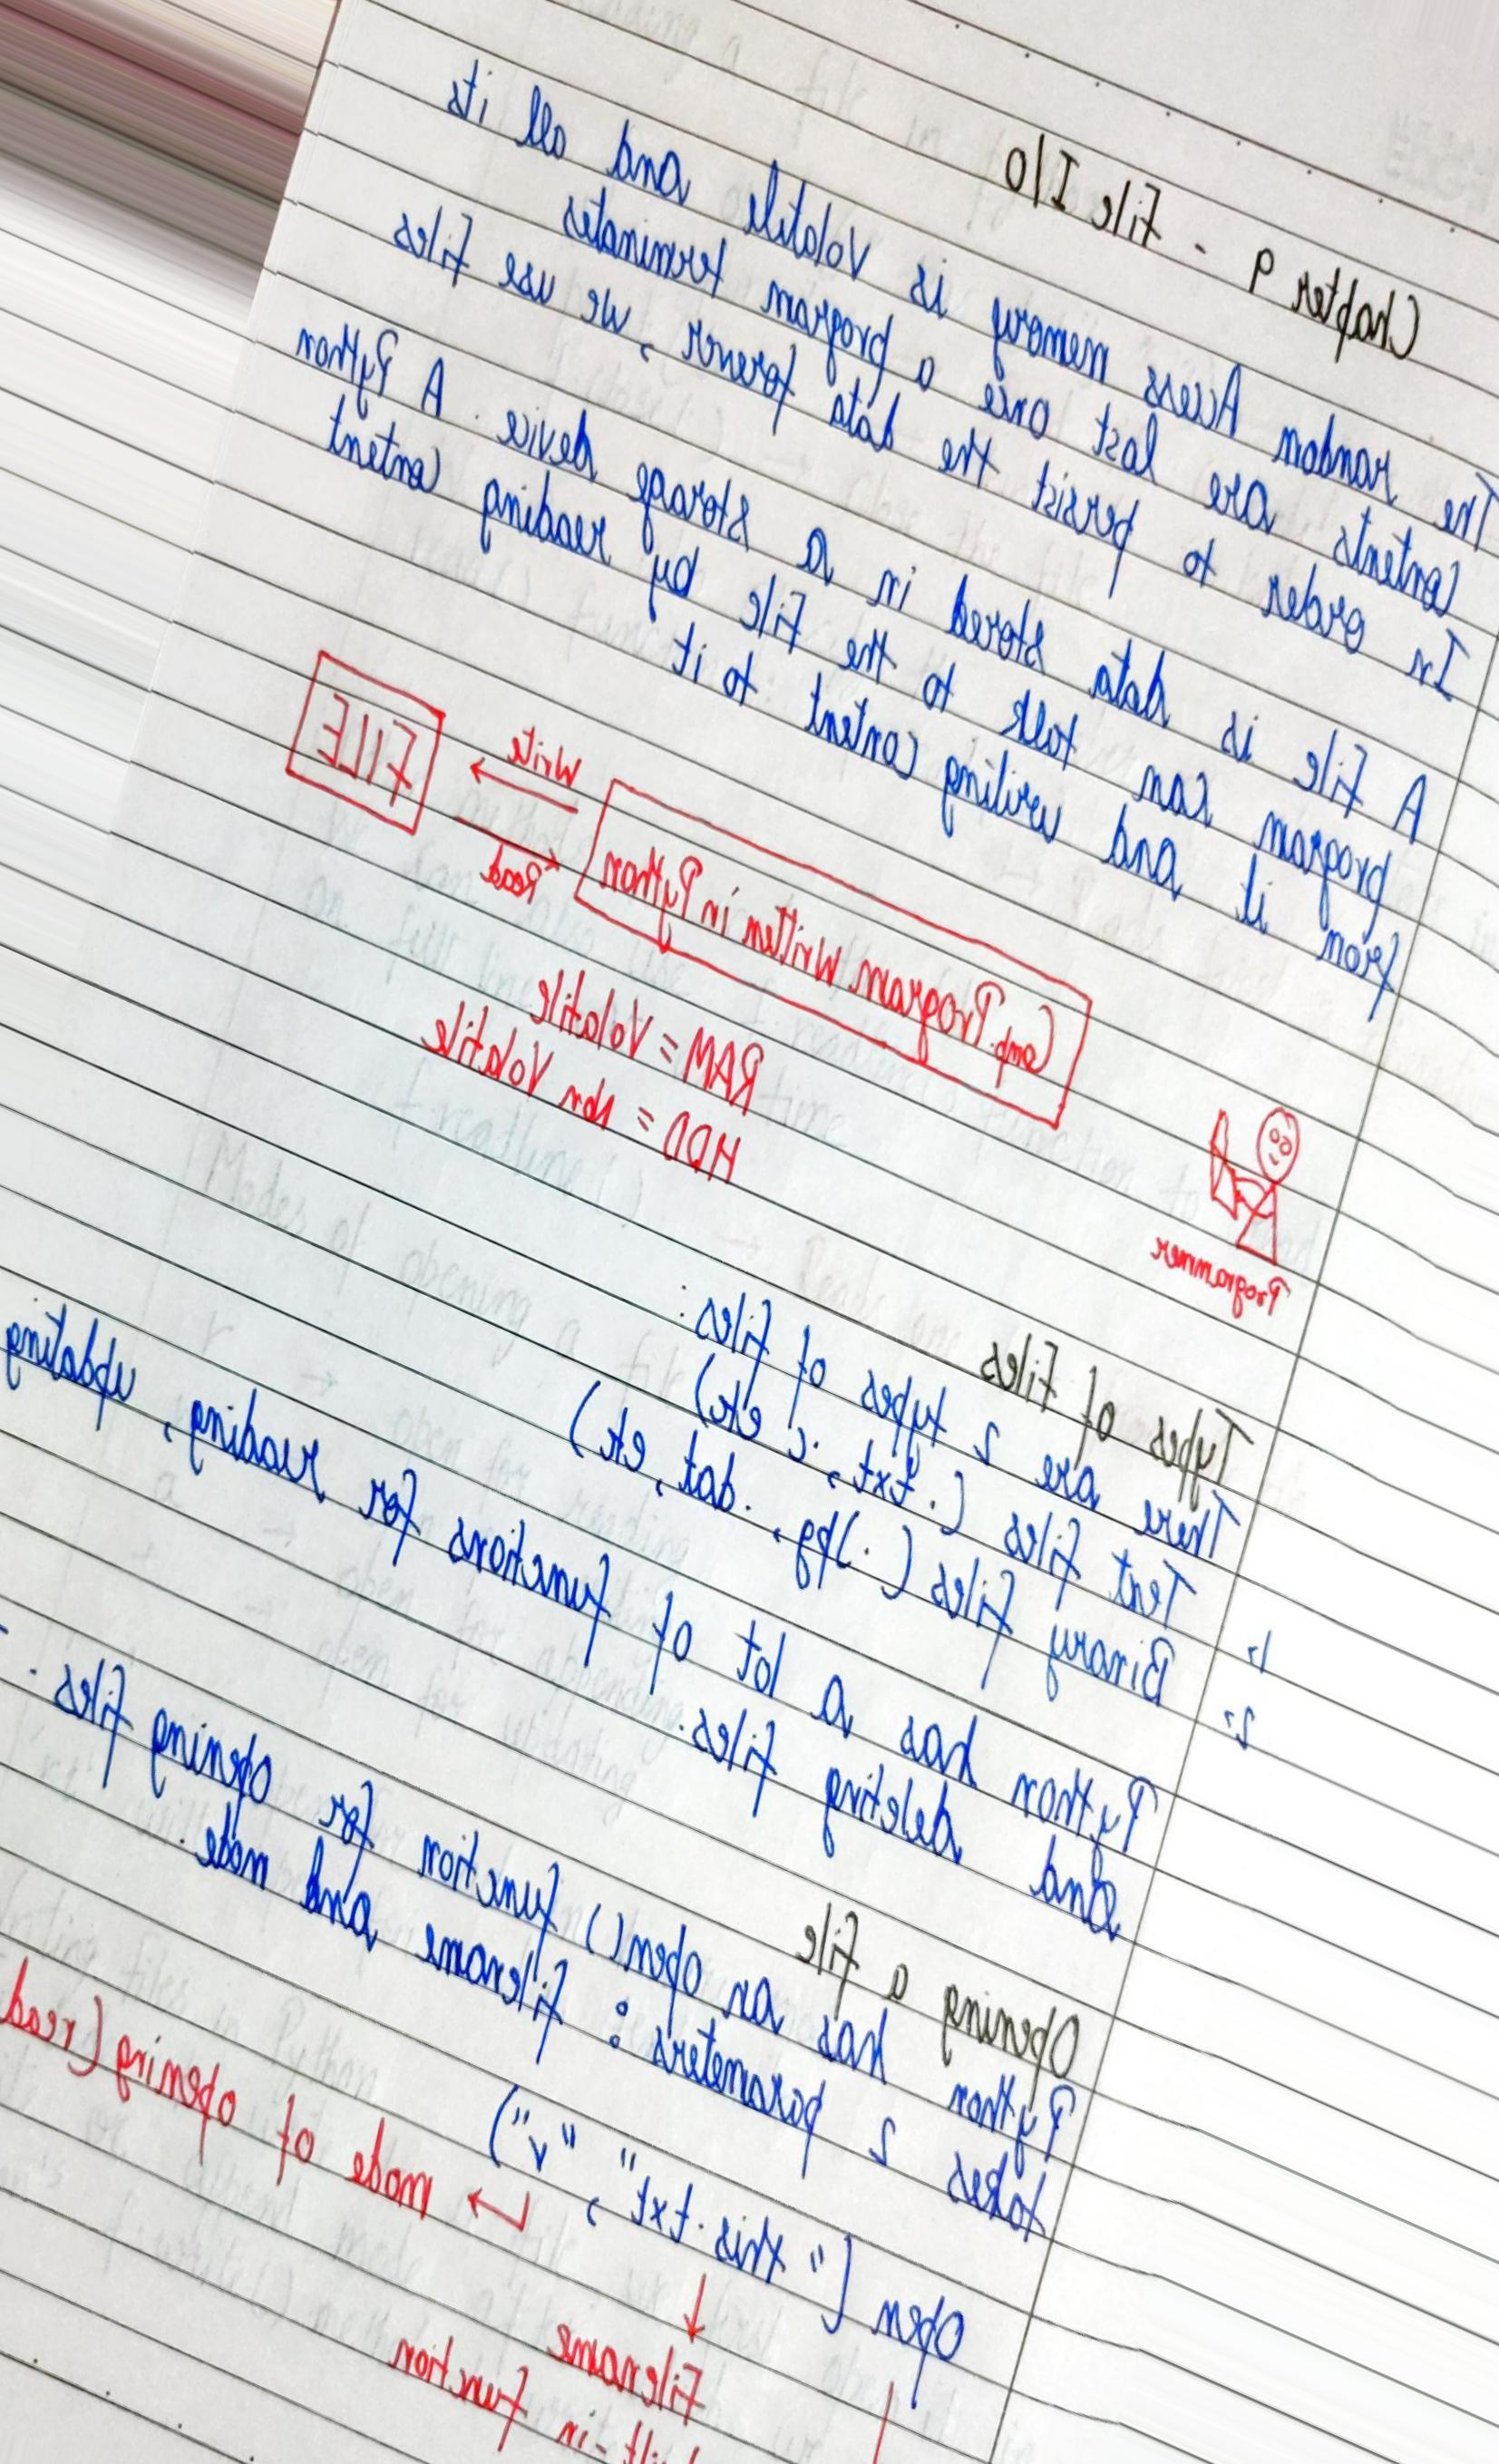 Chapter 9 - File I/O
The random Access memory is volatile and all its
Contents are lost once a program terminates
In order to persist the data forever, we use files
A file is data stored in a storage device. A Python
program can talk to the file by reading content
from it and writing content to it
Programmer
Comp. Program Written in Python
Write
Read
FILE
RAM = Volatile
HDD = Non Volatile
Types of Files
There are 2 types of files:
1. Text files (.txt, .c etc)
2. Binary files (.Jpg, .dat, etc)
Python has a lot of functions for reading, updating
and deleting files.
Opening a file
Python has an open() function for opening files.
takes 2 parameters: filename and mode.
Open ("this.txt", "r")
→ mode of opening (read
↓
Filename
function